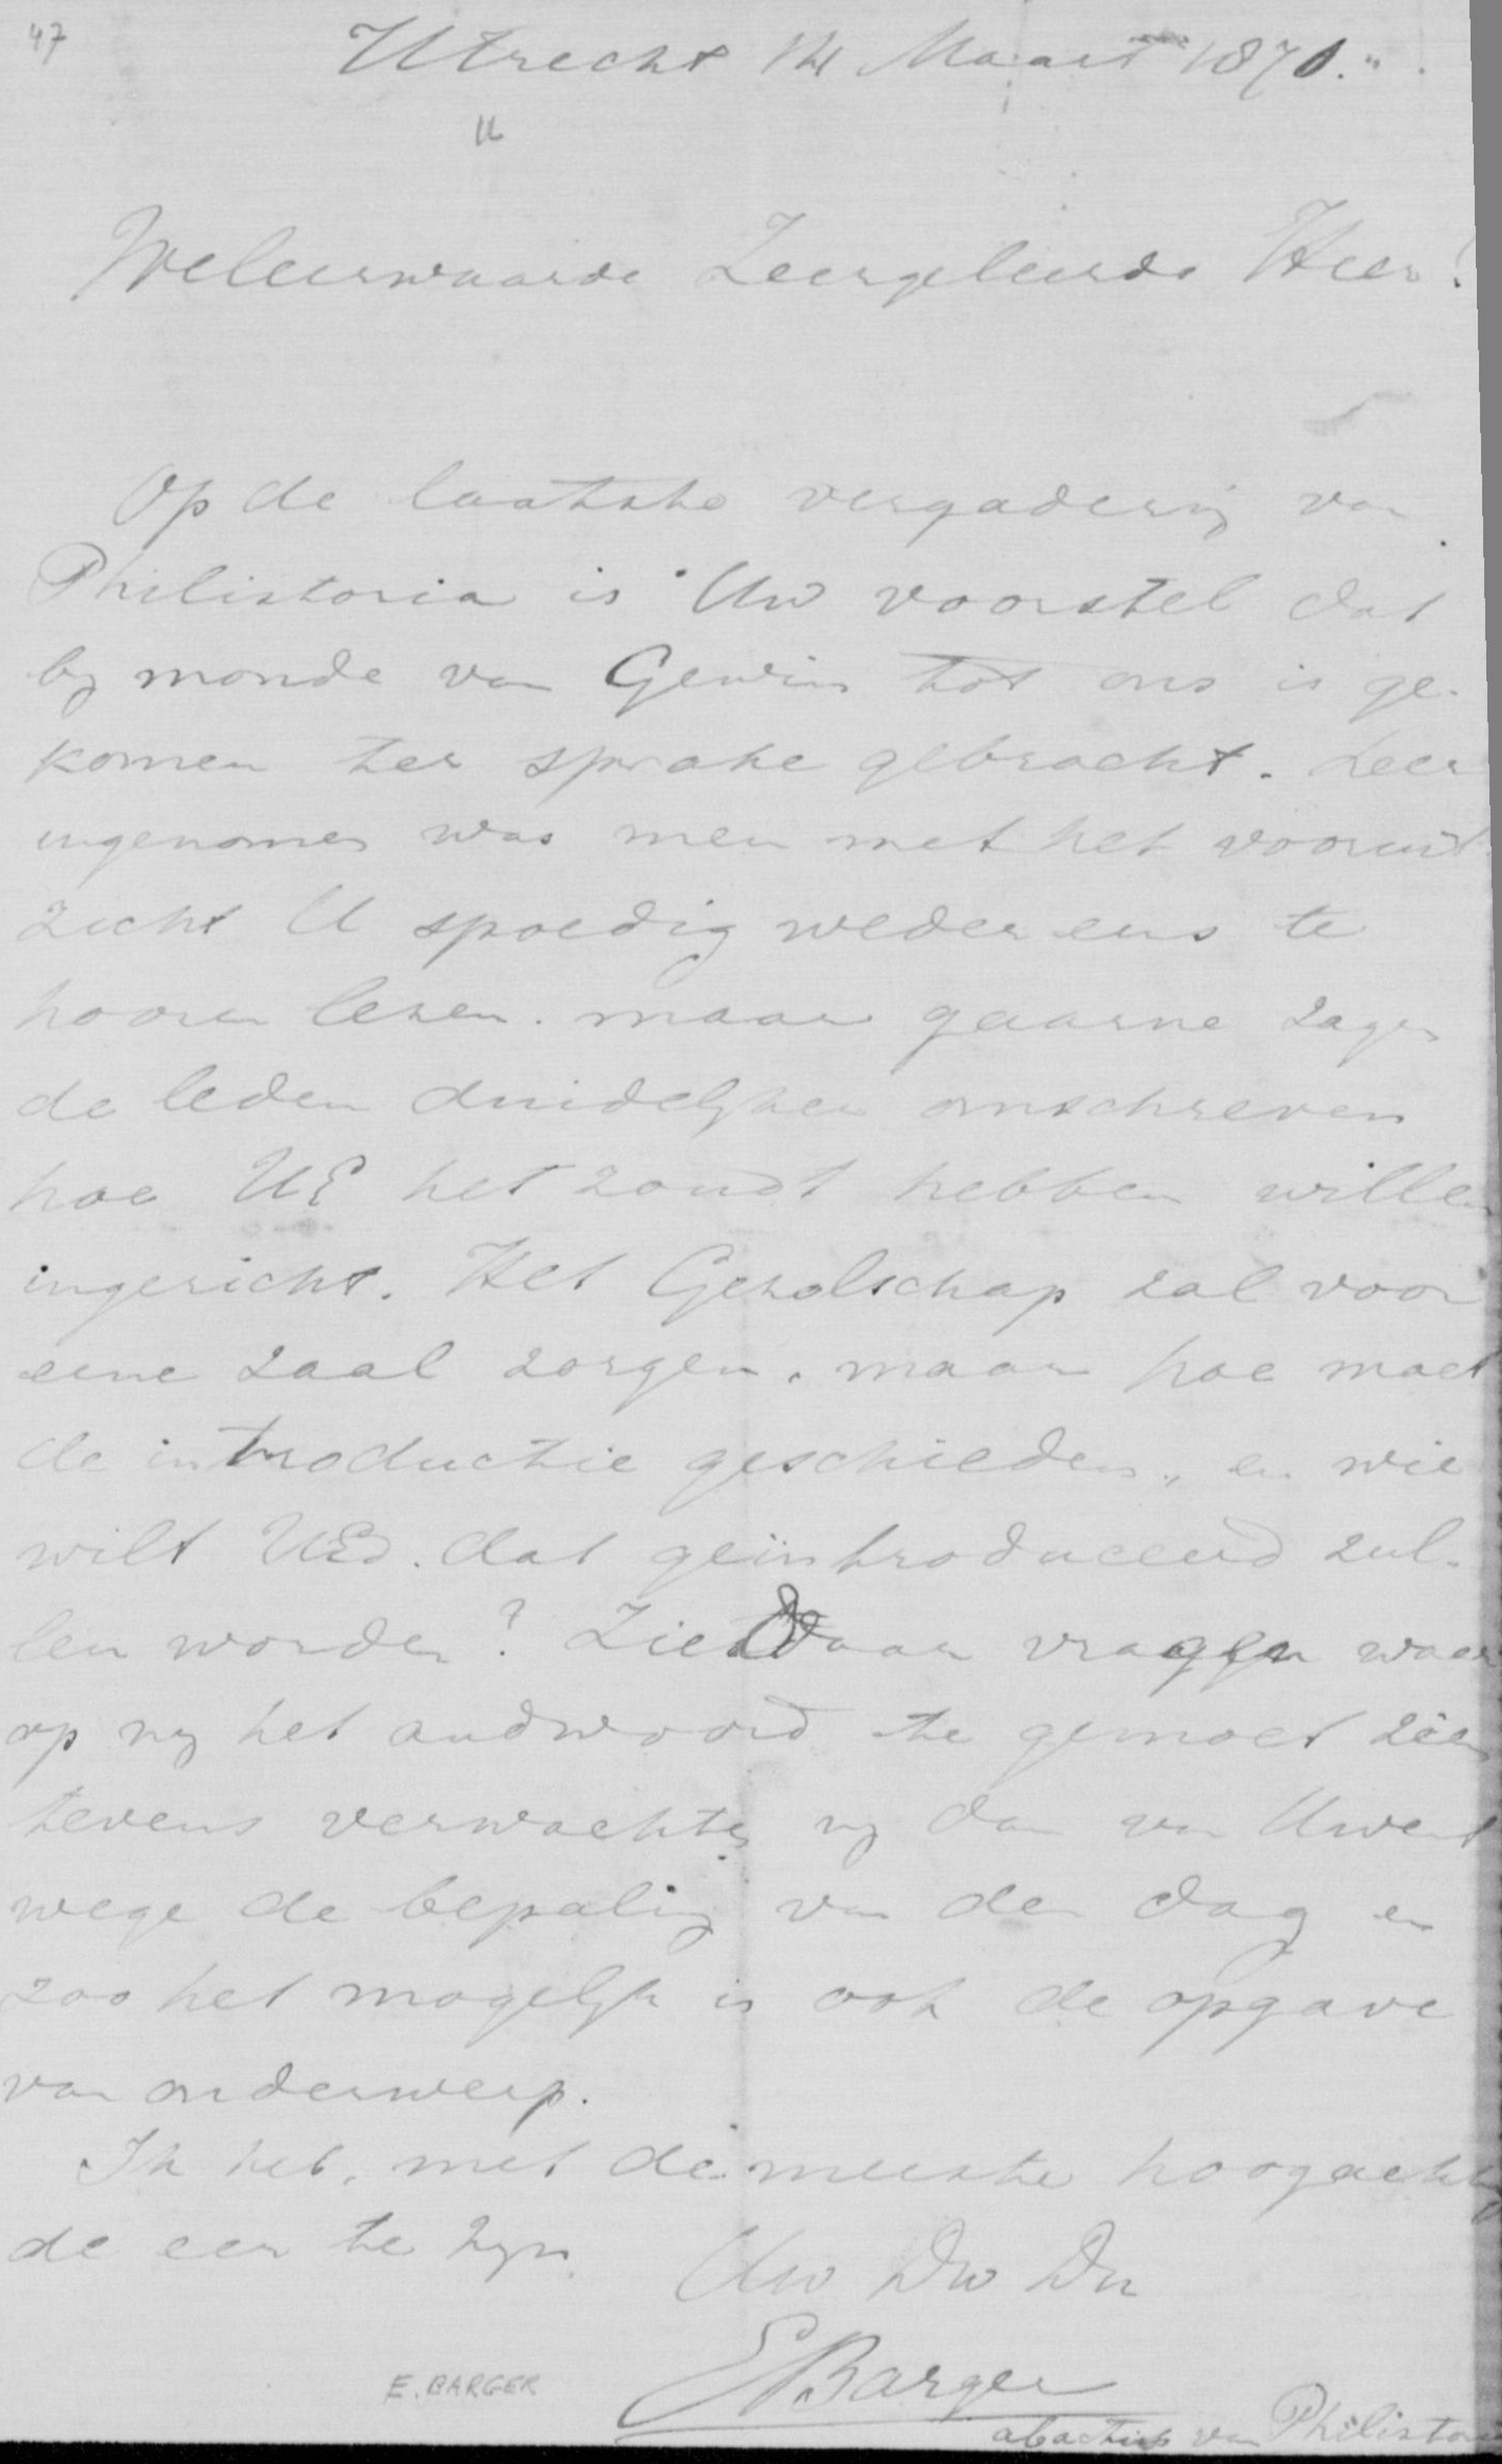 47
Utrecht 14 Maart 1870.
Weleerwaarde Zeergeleerde Heer!
Op de laatste vergadering van
Philistoria is Uw voorstel dat
by monde van Gewin tot ons is ge-
komen ter sprake gebracht. Zeer
ingenomen was men met het vooruit
zicht U spoedig weder eens te
hooren lezen. maar gaarne zagen
de leden duidelyker omschreven
hoe UE het zoudt hebben willen
ingericht. Het Gezelschap zal voor
eene zaal zorgen, maar hoe moet
de introductie geschieden, en wie
wilt UEd. dat geïntroduceerd zul-
len worden? Ziedaar vragen waar
op wy het andwoord te gemoet zien
tevens verwachten wy dan van Uwent
wege de bepaling van den dag en
zoo het mogelyk is ook de opgave
van onderwerp.
Ik heb, met de meeste hoogachting
de eer te zyn.
Uw Dw Dn
EBarger
E. BARGER
abactis van Philistoria